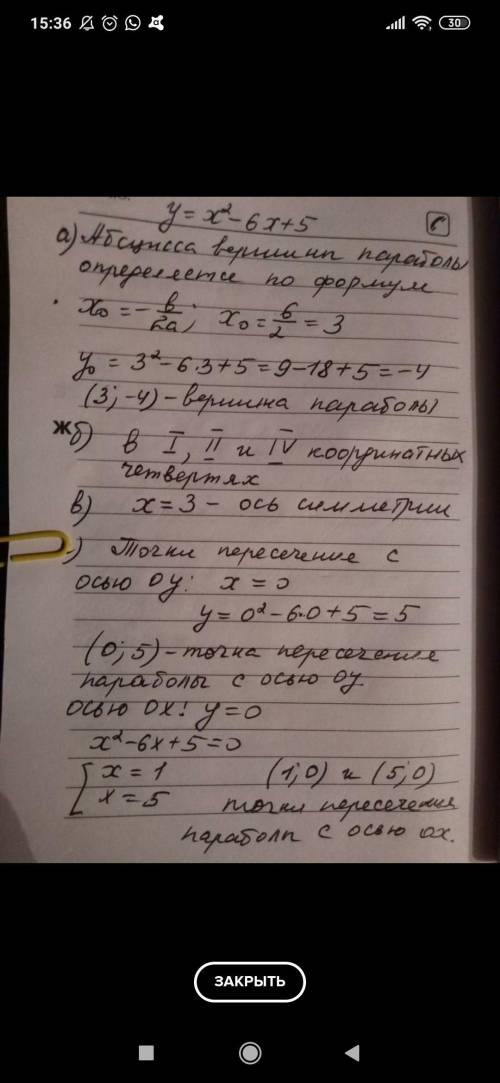 15:36
30
y = x² - 6x + 5
а) Абсцисса вершины параболы
определяется по формуле
x₀ = - в/2а; x₀ = 6/2 = 3
y₀ = 3² - 6·3 + 5 = 9 - 18 + 5 = -4
(3; -4) - вершина параболы
ж б) в I, II и IV координатных
четвертях
в) x = 3 - ось симметрии
) Точки пересечение с
осью ОУ: x = 0
y = 0² - 6·0 + 5 = 5
(0; 5) - точка пересечения
параболы с осью ОУ.
осью ОХ: y = 0
x² - 6x + 5 = 0
[ x = 1 (1; 0) и (5; 0)
x = 5 точки пересечения
параболы с осью ОХ.
ЗАКРЫТЬ